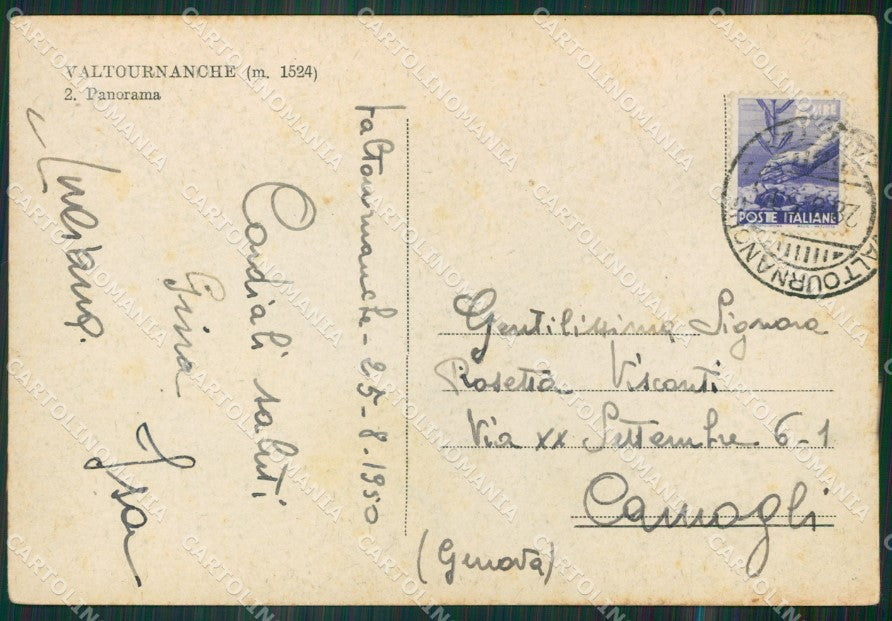 VALTOURNANCHE (m. 1524)
2. Panorama
Valtournanche - 25-8-1950
Cordiali saluti
Gina
Isa
POSTE ITALIANE
VALTOURNANCHE
Gentilissima Signora
Rosetta Visconti
Via XX Settembre 6-1
Camogli
(Genova)
CARTOLINOMANIA